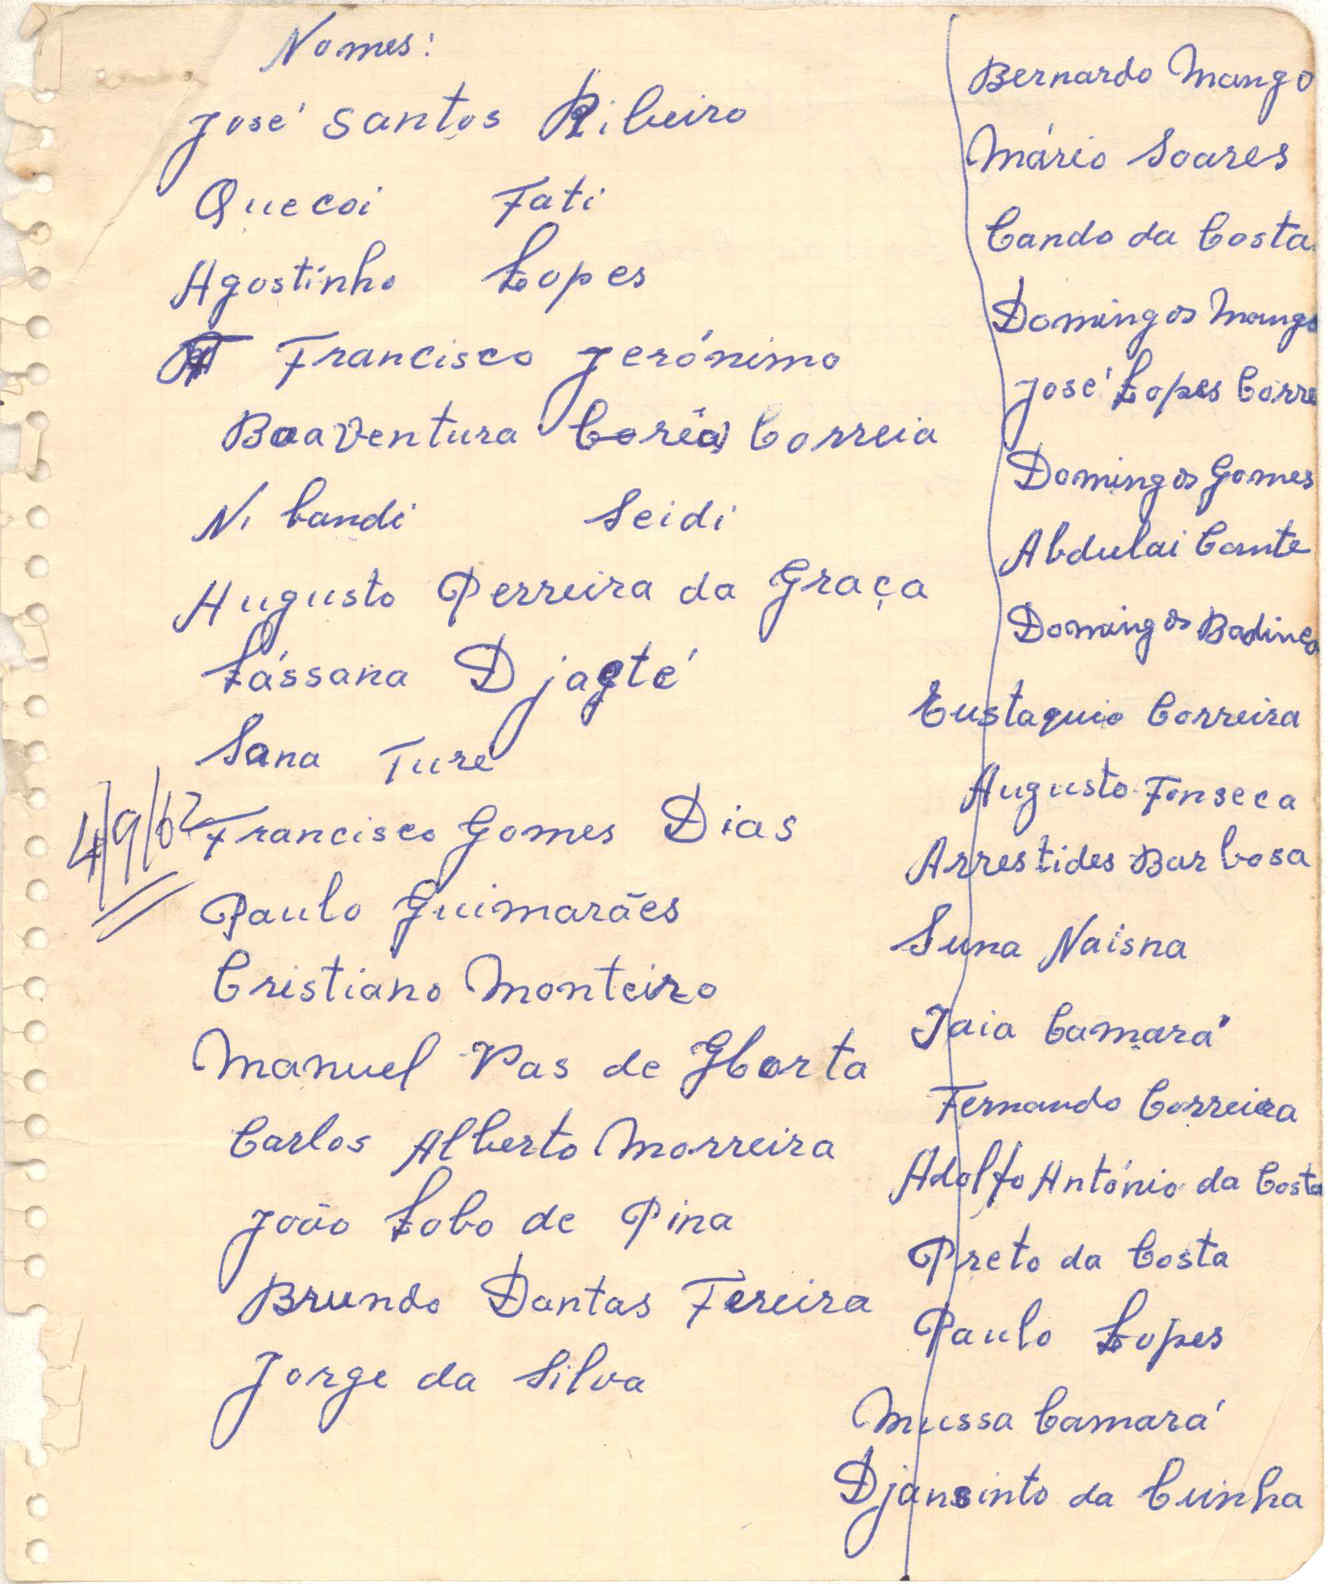 Nomes:
José Santos Ribeiro
Quecoi Fati
Agostinho Lopes
Francisco Jerónimo
Boaventura Coréa Correia
N. bandi Seidi
Augusto Perreira da Graça
Lássana Djagté
Sana Turé
4/9/62
Francisco Gomes Dias
Paulo Guimarães
Cristiano Monteiro
Manuel Vas de Horta
Carlos Alberto Morreira
João Lobo de Pina
Brundo Dantas Fereira
Jorge da Silva
Bernardo Mango
Mário Soares
Cando da Costa
Domingos Mango
José Lopes Corre
Domingos Gomes
Abdulai Cante
Domingos Badinca
Eustaquio Correira
Augusto Fonseca
Arrestides Barbosa
Suna Naisna
Jaia Camará
Fernando Correira
Adolfo António da Costa
Preto da Costa
Paulo Lopes
Mussa Camará
Djansinto da Cuinha